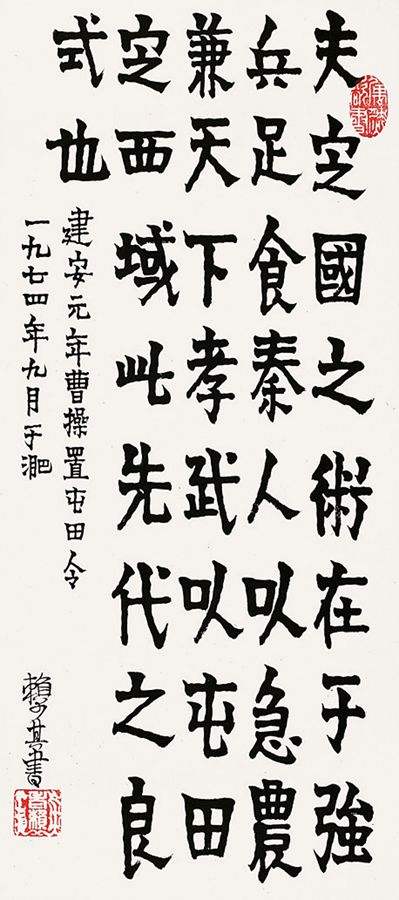 夫定國之術在于強
兵足食秦人以急農
兼天下孝武以屯田
定西域此先代之良
式也
建安元年曹操置屯田令
一九七四年九月于淝
賴少其書